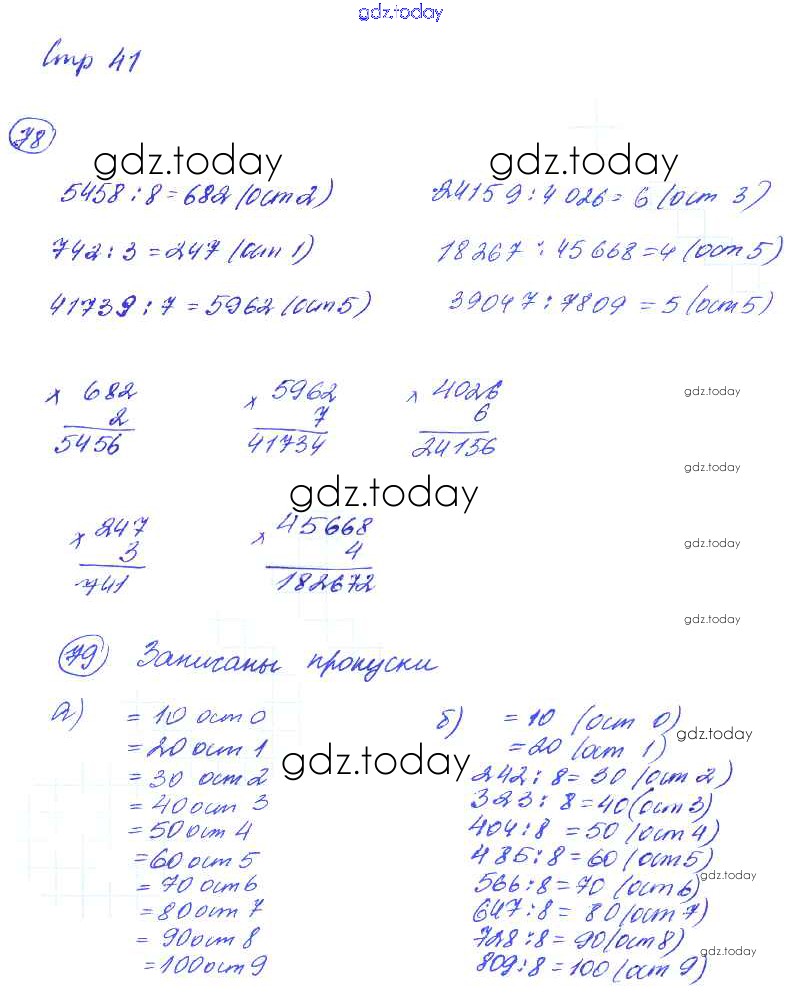 gdz.today
Стр 41
78
gdz.today gdz.today
5458 : 8 = 682 (ост 2) 24159 : 4026 = 6 (ост 3)
742 : 3 = 247 (ост 1) 18267 : 45668 = 4 (ост 5)
41739 : 7 = 5962 (ост 5) 39047 : 7809 = 5 (ост 5)
x 682 x 5962 x 4026 gdz.today
2 7 6
5456 41734 24156
gdz.today
gdz.today
x 247 x 45668
3 4 gdz.today
741 182672
gdz.today
79 Записаны пропуски
а) = 10 ост 0 б) = 10 (ост 0)
gdz.today
= 20 ост 1 = 20 (ост 1)
gdz.today
= 30 ост 2 242 : 8 = 30 (ост 2)
= 40 ост 3 323 : 8 = 40 (ост 3)
= 50 ост 4 404 : 8 = 50 (ост 4)
= 60 ост 5 485 : 8 = 60 (ост 5)
gdz.today
= 70 ост 6 566 : 8 = 70 (ост 6)
= 80 ост 7 647 : 8 = 80 (ост 7)
= 90 ост 8 728 : 8 = 90 (ост 8)
gdz.today
= 100 ост 9 809 : 8 = 100 (ост 9)